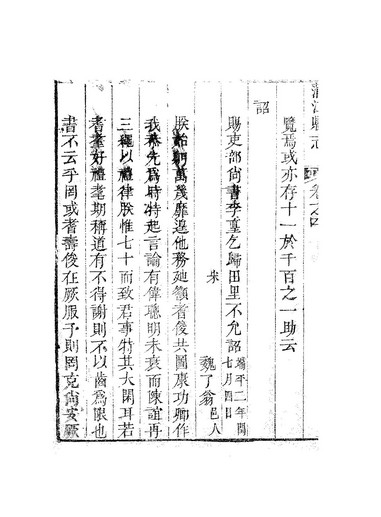 江縣志 卷之四
覽焉或亦存十一於千百之一助云
詔
賜吏部尙書李𡌴乞歸田里不允詔 端平二年閏七月四日
宋 魏了翁 邑人
朕始萬幾靡遑他務廸籲耆俊共圖康功卿作
我恭先爲時特起言論有偉聰明未衰而陳誼再
三繩以禮律朕惟七十而致君事特其大閑耳若
耆耋好禮耄期稱道有不得謝則不以齒爲限也
書不云乎罔或耆壽俊在厥服予則罔克尙安厥